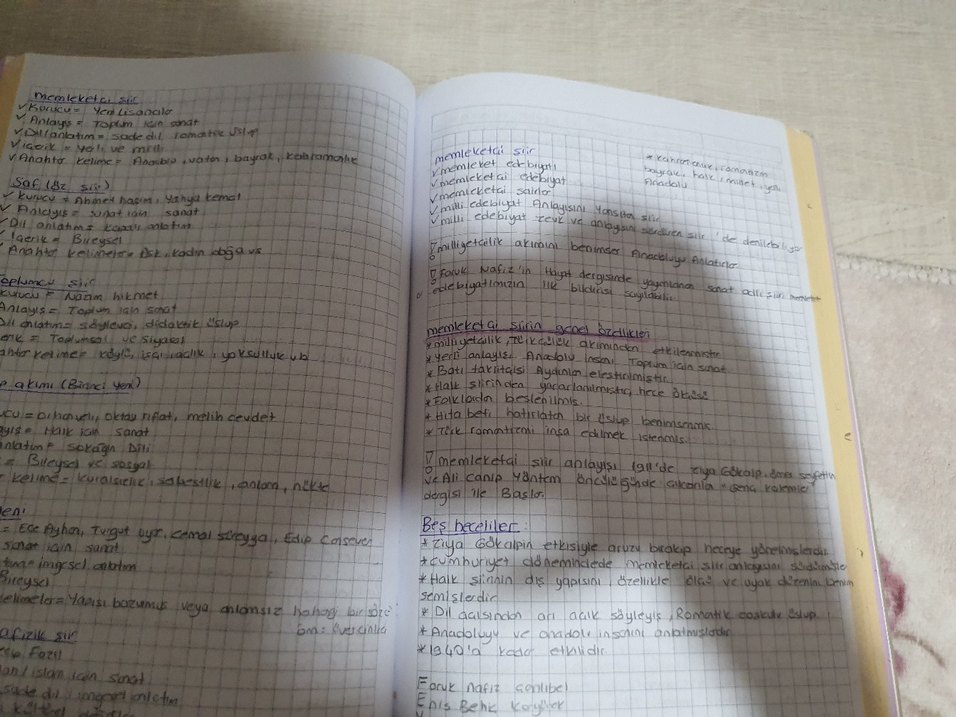 memleketçi şiir
✓ Kurucu = Yeni Lisancılar
✓ Anlayış = Toplum için sanat
✓ Dil/anlatım = sade dil romantik üslup
✓ içerik = yerli ve milli
✓ Anahtar kelime = Anadolu, vatan, bayrak, kahramanlık
Saf (öz şiir)
✓ Kurucu = Ahmet haşim, Yahya kemal
✓ Anlayış = sanat için sanat
✓ Dil anlatım = kapalı anlatım
İçerik = Bireysel
✓ Anahtar kelimeler = Aşk, kadın doğa vs
Toplumcu şiir
kurucu = Nazım hikmet
Anlayış = Toplum için sanat
Dil anlatım = söylevci, didaktik üslup
erik = Toplumsal ve siyasal
ahtar kelime = köylü, işçi, açlık, yoksulluk vb
p akımı (Birinci yeni)
ucu = Orhan veli, Oktay rifat, melih cevdet
ayış = Halk için sanat
anlatım = sokağın Dili
= Bireysel ve sosyal
kelime = kuralsızlık, serbestlik, anlam, nükte
eni
= Ece Ayhan, Turgut uyar, cemal süreyya, Edip Cansever
sanat için sanat
imgesel anlatım
Bireysel
kelimeler = Yapısı bozumuk veya anlamsız hangi bir söz
örn: Üvercinka
afizik şiir
Fazıl
lah/islam için sanat
sade dil, imgesel anlatım
memleketçi şiir
✓ memleket edebiyatı
✓ memleketçi edebiyat
✓ memleketçi şairler
✓ milli edebiyat Anlayışını Yansıtan şiir
✓ milli edebiyat zevk ve anlayışını sürdüren şiir 'de denilebiliyor
* kahramanlık, romantizm
bayrak, halk, millet, yerli
Anadolu
milliyetçilik akımını benimser Anadoluyu Anlatırlar
Faruk Nafiz'in Hayat dergisinde yayımlanan sanat adlı şiir
edebiyatımızın ilk bildirisi sayılabilir
memleketçi şiirin genel özellikleri
* milliyetçilik, türkçülük akımından etkilenmiştir
* Yerli anlayışı Anadolu insanı Toplum için sanat
* Batı taklitçisi Aydınlar eleştirilmiştir
* Halk şiirinden yararlanılmıştır, hece ölçüsü
* Folklordan beslenilmiş
* Hitabeti hatırlatan bir üslup benimsenmiş
* Türk romantizmi inşa edilmek istenmiş
memleketçi şiir anlayışı 1911'de ziya Gökalp, ömer seyfettin
ve Ali canip Yöntem öncülüğünde çıkarılan "Genç kalemler
dergisi ile Başlar
Beş hececiler:
* Ziya Gökalpin etkisiyle aruzu bırakıp heceye yönelmişlerdir
* Cumhuriyet döneminde memleketçi şiir anlayışını sürdürmüşler
* Halk şiirinin dış yapısını, özellikle ölçü ve uyak düzenini benim
semişlerdir
* Dil açısından arı açık söyleyiş, Romantik coşkulu üslup
* Anadoluyu ve anadolu insanını anlatmışlardır
* 1940'a kadar etkilidir
Faruk nafiz çamlıbel
Enis Behiç Koryürek